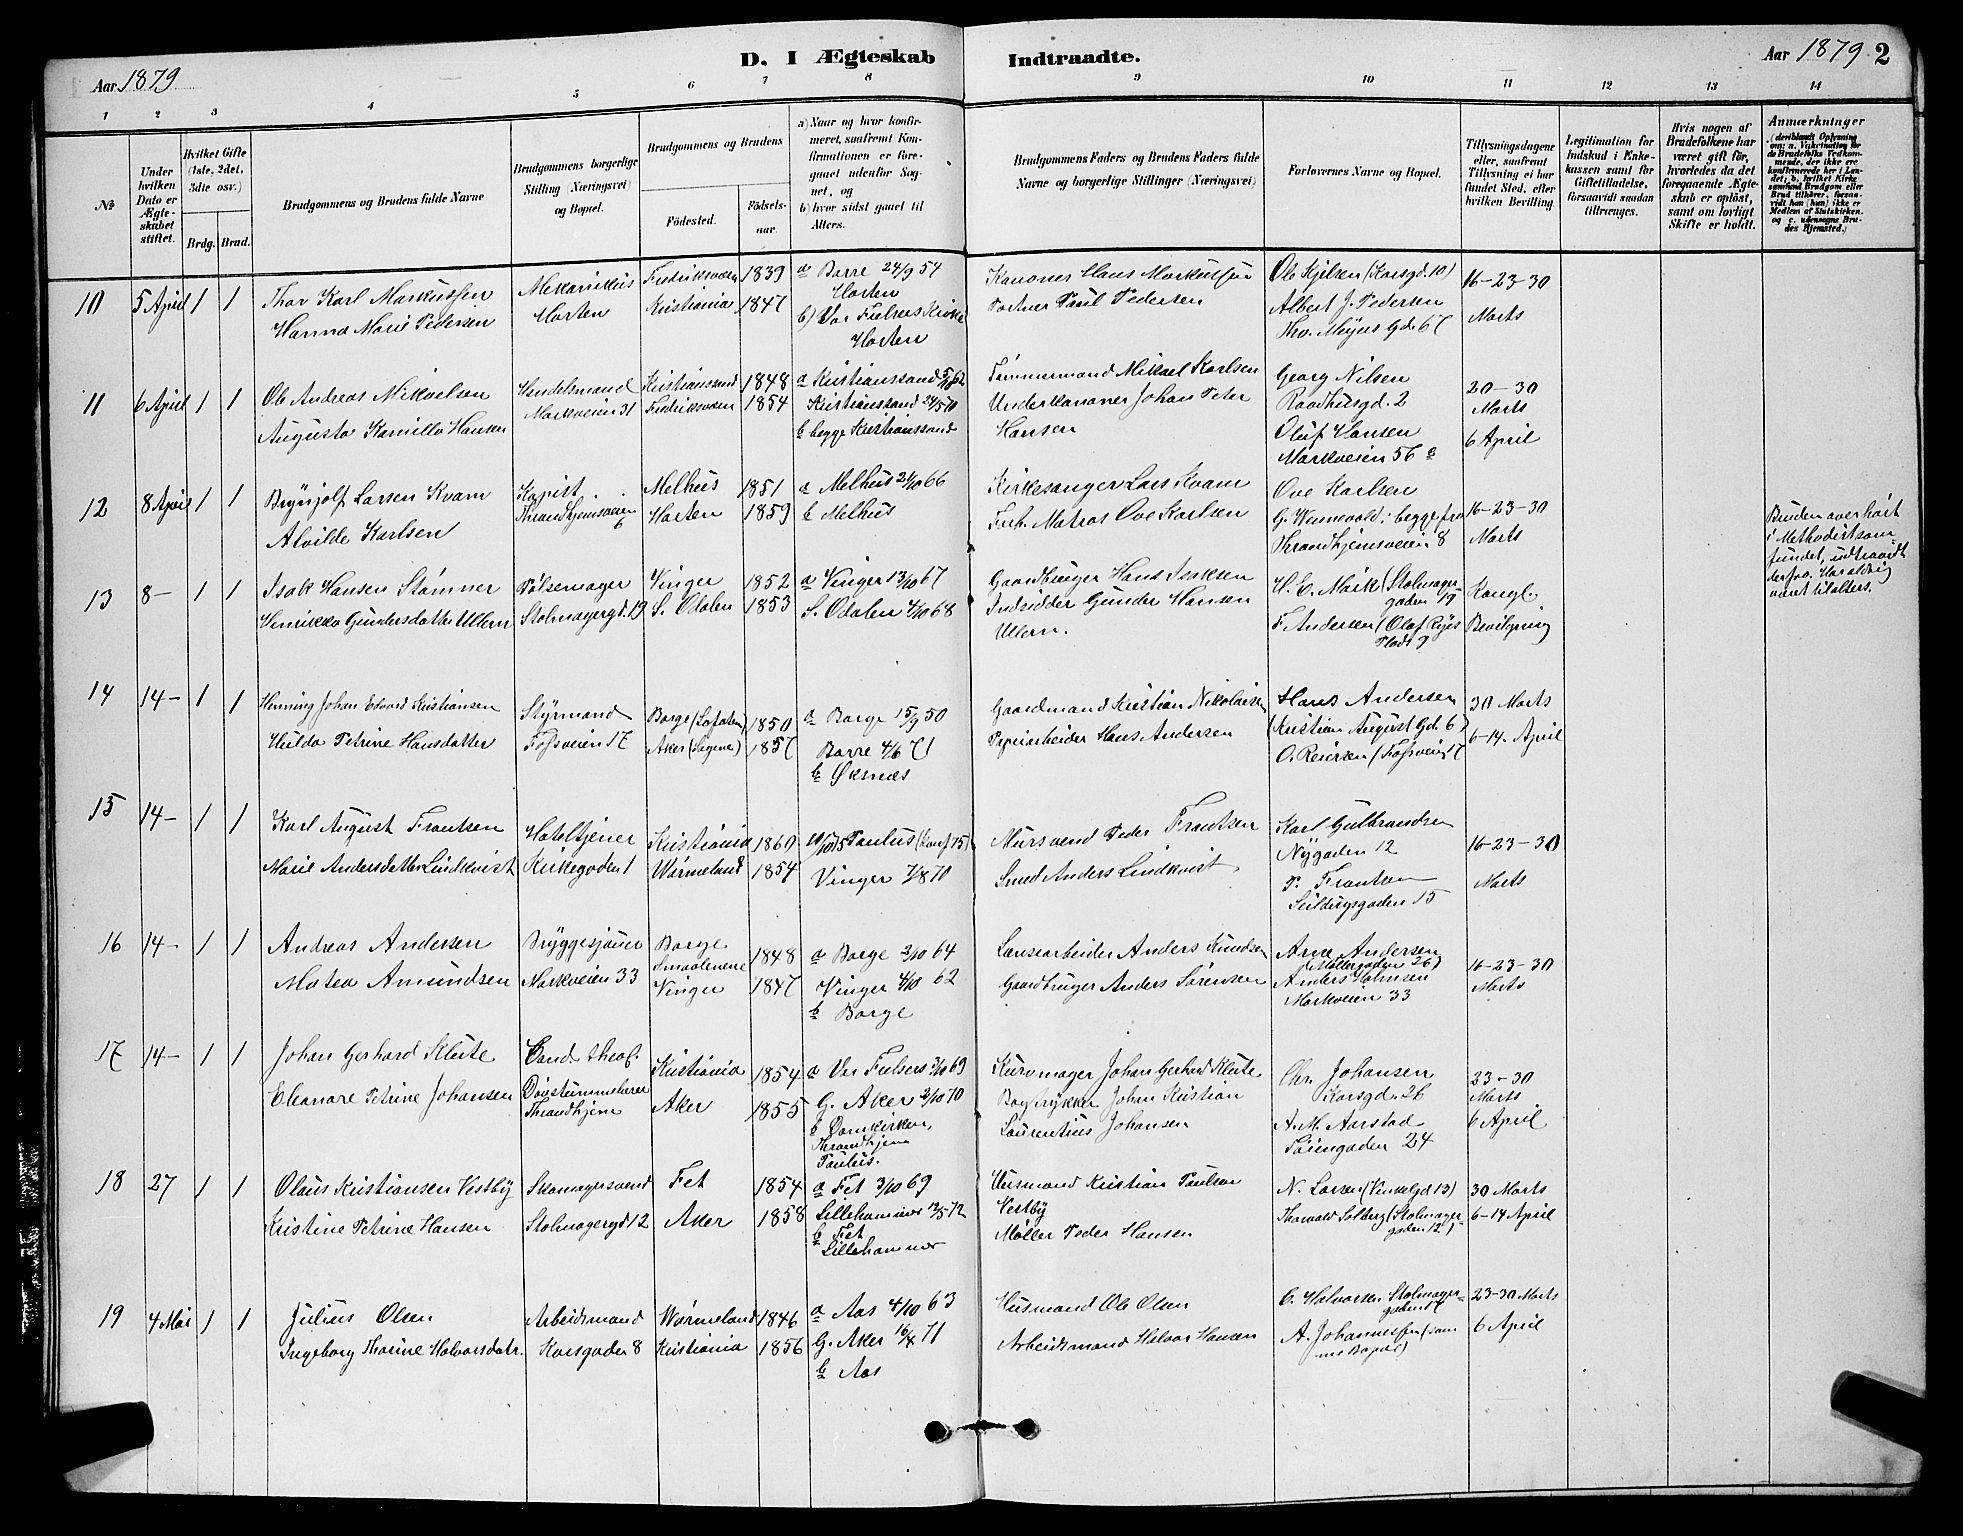 Aar 1879.
D. I Ægteskab Indtraadte.
Aar 1879 2
1 2 3 4 5 6 7 8 9 10 11 12 13 14
№
Under hvilken Dato er Ægteskabet stiftet.
Hvilket Gifte (1ste, 2det, 3die osv.)
Brdg. Brud.
Brudgommens og Brudens fulde Navne
Brudgommens borgerlige Stilling (Næringsvei) og Bopæl.
Brudgommens og Brudens
Födested.
Födselsaar.
a) Naar og hvor konfirmeret, saafremt Konfirmationen er foregaaet udenfor Sognet, og
b) hvor sidst gaaet til Alters.
Brudgommens Faders og Brudens Faders fulde Navne og borgerlige Stillinger (Næringsvei)
Forlovernes Navne og Bopæl.
Tillysningsdagene eller, saafremt Tillysning ei har fundet Sted, efter hvilken Bevilling
Legitimation for Indskud i Enkekassen samt for Giftetilladelse, forsaavidt saadan tiltrænges.
Hvis nogen af Brudefolkene har været gift för, hvorledes da det foregaaende Ægteskab er oplöst, samt om lovligt Skifte er holdt.
Anmærkninger
10 5 April 1 1
Thor Karl Markussen
Hanna Marie Pedersen
Mekanikus
Horten
Fredriksværn 1839
Kristiania 1847
a Borre 24/9 54
Horten
b) Vor Frelsers Kirke
Horten
Kanoner Hans Markussen
Portner Paul Pedersen
Ole Kjelsen (Korsgd. 10)
Albert J. Pedersen
Thv. Meyers Gd. 67
16-23-30
Marts
11 6 April 1 1
Ole Andreas Mikaelsen
Augusta Kamilla Hansen
Handelsmand
Markveien 31
Kristianssand 1848
Fredriksværn 1854
a Kristianssand
Kristianssand 24/5 70
b begge Kristianssand
Tømmermand Mikael Karlsen
Underkanoner Johan Peter
Hansen
Georg Nilsen
Raadhusgd. 2
Oluf Hansen
Markveien 56 c
20-30
Marts
6 April
12 8 April 1 1
Brynjolf Larsen Kvam
Alvilde Karlsen
Kopist
Throndhjemsveien
6
Melhus 1851
Horten 1859
a Melhus 2/10 66
b Melhus
Kirkesanger Lars Kvam
Frh. Matros Ove Karlsen
Ove Karlsen
G. Wennevold, begge fra
Throndhjemsveien 8
16-23-30
Marts
Bruden overhørt
i Methodistsam-
fundet, udtraadt
derfra. Har aldrig
været tilalters.
13 8- 1 1
Isak Hansen Stømner
Henrikka Gundersdatter Ullern
Pølsemager
Stolmagergd. 19
Vinger 1852
S. Odalen 1853
a Vinger 13/10 67
S. Odalen 4/10 68
Gaardbruger Hans Isaksen
Indsidder Gunder Hansen
Ullern.
H. E. Mørk (Stolmager
gaden 19
F. Andersen (Olaf Ryes
Plads 9
Kongl.
Bevilgning
14 14- 1 1
Henning Johan Edvard Kristiansen
Hulda Petrine Hansdatter
Styrmand
Fossveien 17
Borge (Lofoten) 1850
Aker (Sagene) 1857
a Borge 15/9 50
Borre 4/6 71
b Øksnæs
Gaardmand Kristian Nikolaisen
Papirarbeider Hans Andersen
Hans Andersen
(Kristian August Gd. 6)
O. Reiersen (Fossveien 17
30 Marts
6-14 April
15 14- 1 1
Karl August Frantsen
Marie Andersdatter Lindkvist
Hoteltjener
Kirkegaden 1
Kristiania 1860
Wærmeland 1854
10/10 75 Paulus (Konf. 75)
Vinger 7/8 70
Mursvend Peder Frantsen
Smed Anders Lindkvist
Karl Gulbrandsen
Nygaden 12
P. Frantsen
Seildugsgaden 15
16-23-30
Marts
16 14- 1 1
Andreas Andersen
Matea Amundsen
Bryggesjouer
Markveien 33
Borge
Smaalenene 1848
Vinger 1847
a Borge 2/10 64
Vinger 4/10 62
b Borge
Lænsearbeider Anders Knudsen
Gaardbruger Anders Sørensen
Arne Andersen
(Møllergaden 26)
Anders Holmsen
Markveien 33
16-23-30
Marts
17 14- 1 1
Johan Gerhard Klute
Eleanore Petrine Johansen
Cand. theol.
Døvstummelærer
Throndhjem
Kristiania 1854
Aker 1855
a Vor Frelsers 3/10 69
G. Aker 2/10 70
b Domkirken,
Throndhjem
Paulus.
Kurvmager Johan Gerhard Klute
Bogtrykker Johan Kristian
Laurentius Johansen
Chr. Johansen
Korsgd. 26
A. M. Aarstad
Tøiengaden 24
23-30
Marts
6 April
18 27 1 1
Olaus Kristiansen Vestby
Kristine Petrine Hansen
Skomagersvend
Stolmagergd 12
Fet 1854
Aker 1858
a Fet 3/10 69
Lillehammer 12/5 72
b Fet
Lillehammer
Husmand Kristian Paulsen
Vestby
Møller Peder Hansen
N. Larsen (Vinkelgd 13)
Thorvald Solberg (Stolmager-
gaden 12)
30 Marts
6-14 April
19 4 Mai 1 1
Julius Olsen
Ingeborg Thorine Halvorsdatr.
Arbeidsmand
Korsgaden 8
Wærmeland 1846
Kristiania 1856
a Aas 4/10 63
G. Aker 16/4 71
b Aas
Husmand Ole Olsen
Arbeidsmand Halvor Hansen
C. Halvorsen Stolmager-
gaden 17
A. Johannessen (sam
me Bopæl)
23-30 Marts
6 April